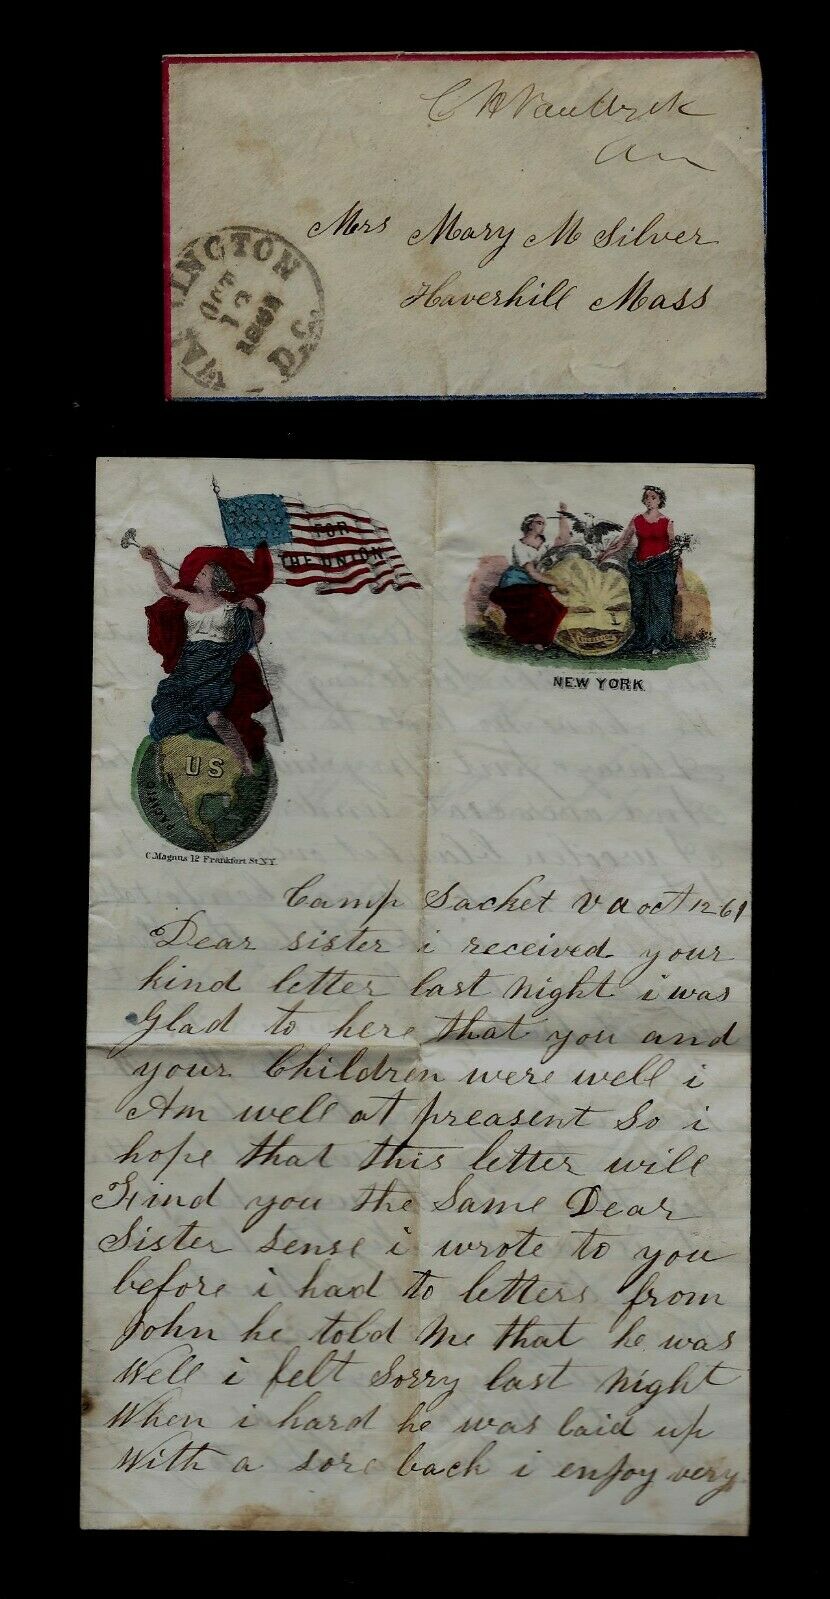 C H Van Wyck
Mrs Mary M Silver
Haverhill Mass
WASHINGTON
D.C.
OCT
12
FOR
THE UNION
NEW YORK
US
PACIFIC
C. Magnus 12 Frankfort St. N.Y.
Camp Sacket va oct 12 61
Dear sister i received your
kind letter last night i was
Glad to here that you and
your Children were well i
Am well at preasent So i
hope that this letter will
Find you the Same Dear
Sister sense i wrote to you
before i had to letters from
John he told me that he was
Well i felt Sorry last night
When i hard he was laid up
With a sore back i enjoy very